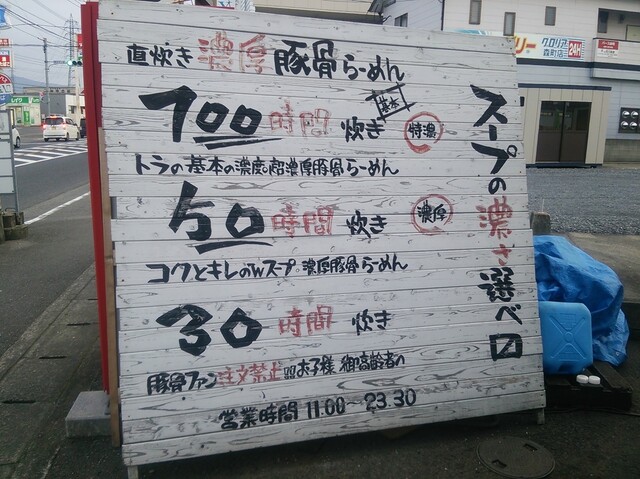 直炊き濃厚豚骨らーめん
100時間炊き
基本
特濃
トラの基本の濃度超濃厚豚骨らーめん
50時間炊き
濃厚
コクとキレのWスープ。濃厚豚骨らーめん
30時間炊き
豚骨ファン注文禁止 お子様 御高齢者の
営業時間 11.00〜23.30
スープの濃さ選べ口
リー
クロリア
森町店
24H